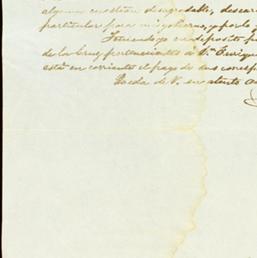 alguna cuestion desagradable, descar
particular para mi gobierno, y por lo
Teniendo yo en deposito
de la Cruz pertenecientes á Dn. Enriqu
está en corriente el pago de sus corresp
Queda de V. su atento